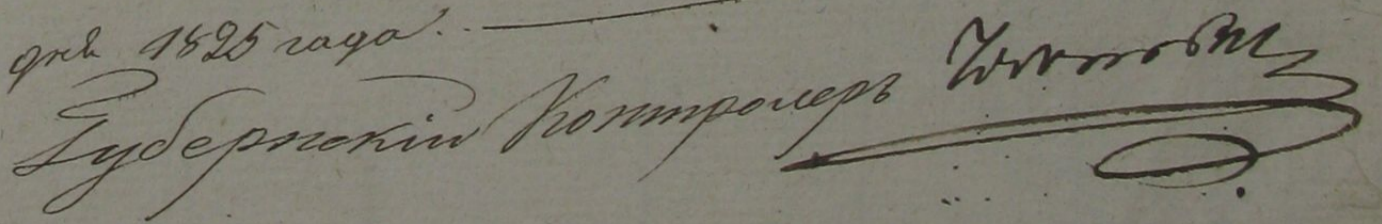 дня 1825 года.
Губернскiй Контролеръ